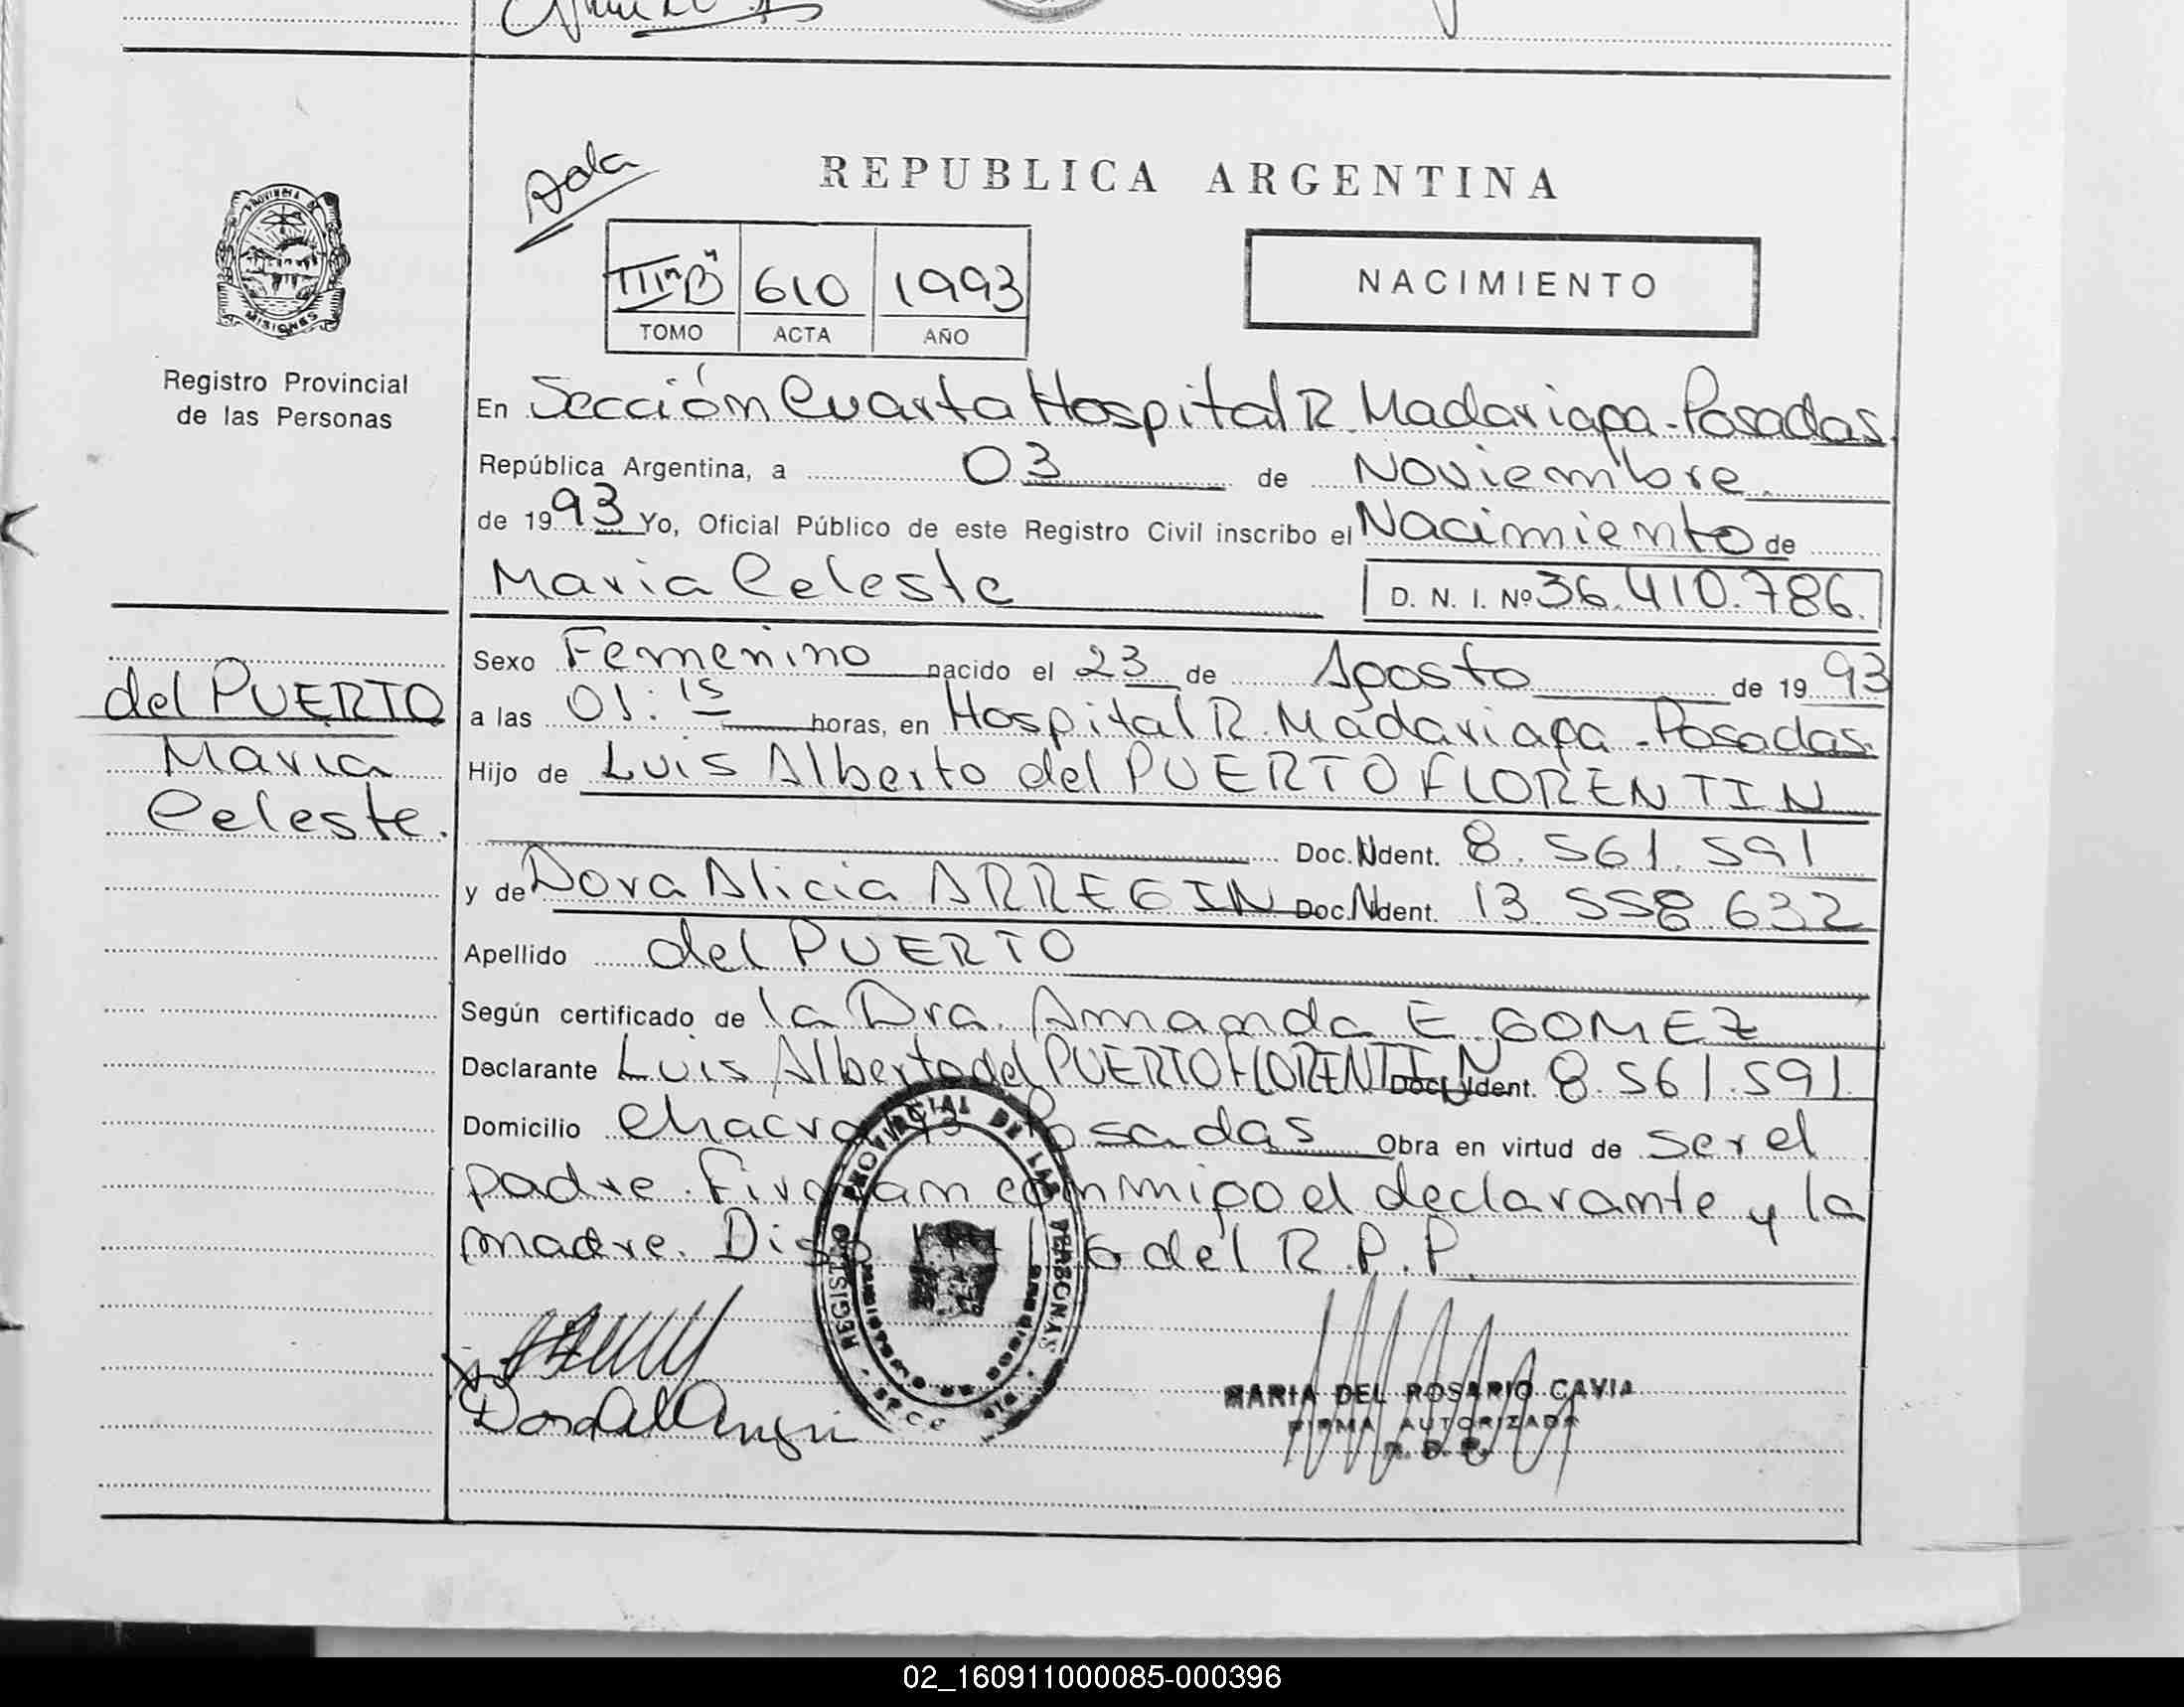 Sola
REPUBLICA ARGENTINA
PROVINCIA DE
MISIONES
Registro Provincial
de las Personas
III "B" 610 1993
TOMO ACTA AÑO
NACIMIENTO
En Sección Cuarta Hospital R. Madariaga - Posadas.
República Argentina, a 03 de Noviembre
de 1993 Yo, Oficial Público de este Registro Civil inscribo el Nacimiento de
Maria Celeste D. N. I. Nº 36.410.786.
Sexo Femenino nacido el 23 de Agosto de 1993
a las 01:15 horas, en Hospital R. Madariaga - Posadas.
Hijo de Luis Alberto del PUERTO FLORENTIN
Doc. Ident. 8.561.591
y de Dora Alicia ARREGIN Doc. Ident. 13.558.632
Apellido del PUERTO
Según certificado de la Dra. Amanda E. GOMEZ
Declarante Luis Alberto del PUERTO FLORENTIN Doc. Ident. 8.561.591.
Domicilio Chacra Posadas Obra en virtud de ser el
padre. Firman conmigo el declarante y la
madre. Disp del R.P.P.
del PUERTO
Maria
Celeste.
REGISTRO PROVINCIAL DE LAS PERSONAS
MARIA DEL ROSARIO CAVIA
FIRMA AUTORIZADA
02_160911000085-000396